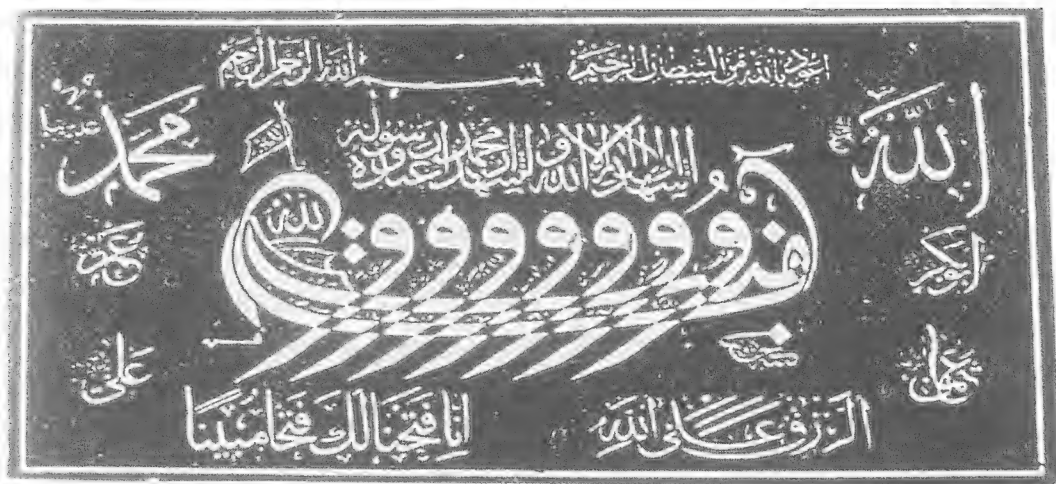 اعوذ بالله من الشيطان الرجيم
بسم الله الرحمن الرحيم
الله
محمد
اشهد ان لا اله الا الله و اشهد ان محمدا عبده و رسوله
و و و و و و و
الله
ابوبكر
عمر
عثمان
على
الرزق على الله
انا فتحنا لك فتحا مبينا